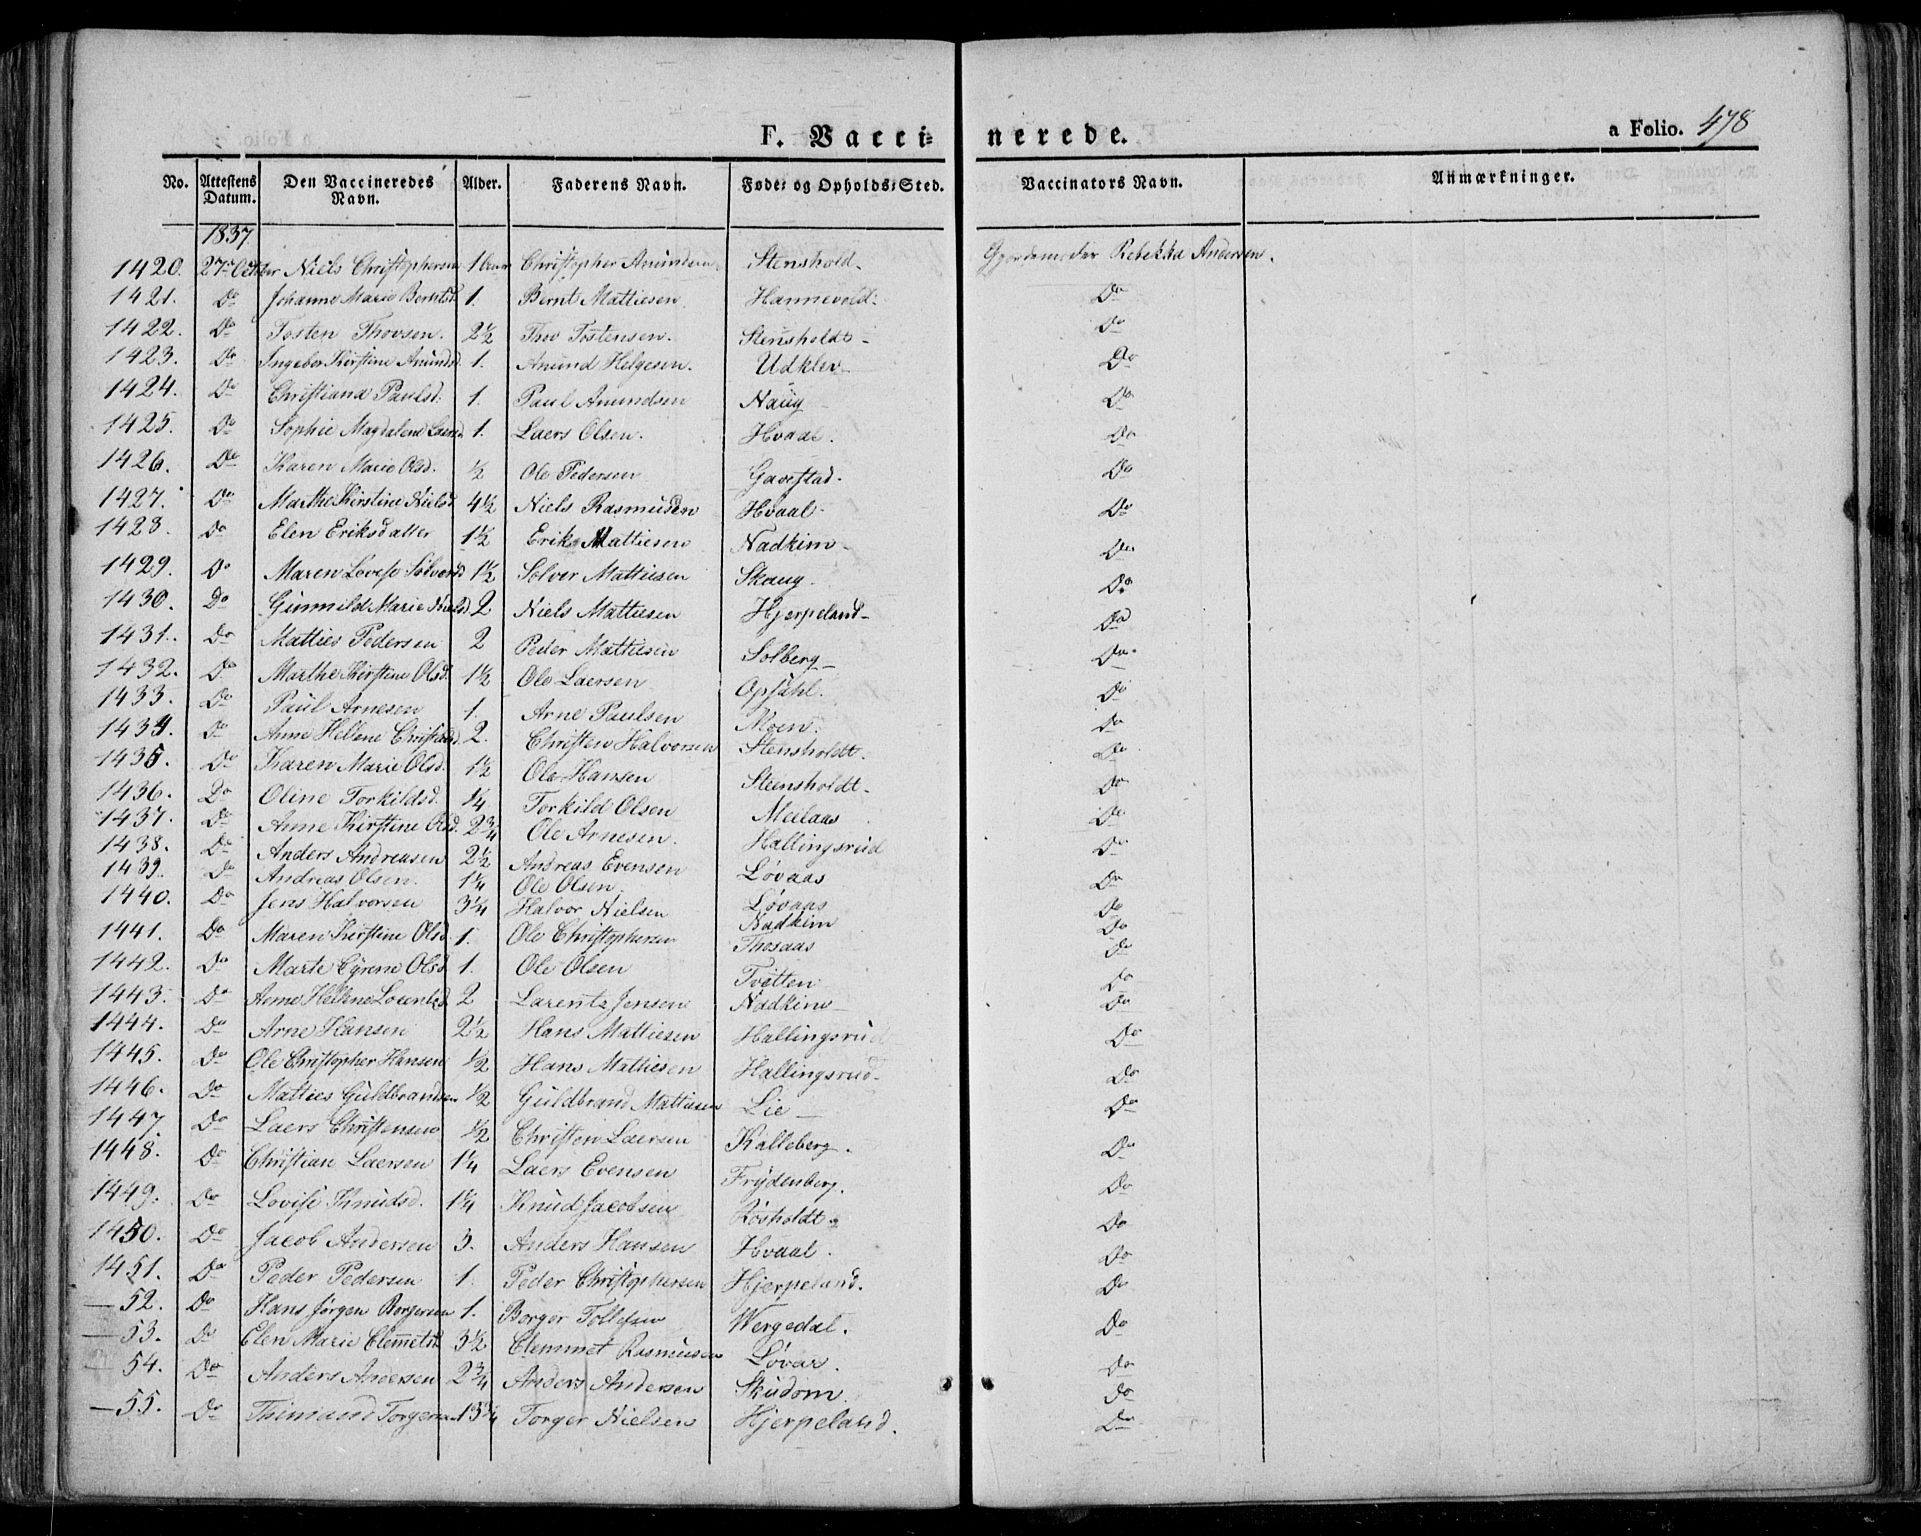 F. Vacci=nerede.
a Folio. 478
No. Attestens Datum. Den Vaccineredes Navn. Alder. Faderens Navn. Føde= og Opholds=Sted. Vaccinators Navn. Anmærkninger.
1837
1420. 27de Octber Niels Christophersen 1 aar Christopher Amundsen Stenshold. Gjordemoder Rebekka Andersen.
1421. Do Johanne Marie Berntsd. 1. Bernt Mattiesen Hannevold. Do
1422. Do Tosten Thovsen. 2½ Thov Tostensen. Stensholdt Do
1423. Do Ingebor Kirstine Anundsd. 1. Anund Helgesen. Udklev Do
1424. Do Christiana Paulsd. 1. Paul Anundsen Naug Do
1425. Do Sophie Magdalene Laersd. 1. Laers Olsen. Hvaal. Do
1426. Do Karen Marie Olsd. ½ Ole Pedersen Gavestad. Do
1427. Do Marthe Kirstine Nielsd. 4½ Niels Rasmusen Hvaal Do
1428. Do Elen Eriksdatter 1½ Erik Mattiesen Nadkim Do
1429. Do Maren Lovise Solversd 1½ Solver Mattiesen Skaug. Do
1430. Do Gunnild Marie Nielsd 2 Niels Mattiesen Hjerpeland Do
1431. Do Matties Pedersen 2 Peder Mattiesen Solberg Do
1432. Do Marthe Kirstine Olsd. 1½ Ole Laersen Opsahl. Do
1433. Do Paul Arnesen 1. Arne Paulsen Moen. Do
1434. Do Anne Hellene Christensd. 2. Christen Halvorsen Stensholdt. Do
1435. Do Karen Marie Olsd. 1½ Ole Hansen Steensholdt Do
1436. Do Oline Torkildsd. ¼ Torkild Olsen Meilaas Do
1437. Do Anne Kirstine Olsd. 2¾ Ole Arnesen. Hallingsrud Do
1438. Do Anders Andreasen 2½ Andreas Evensen Løvaas Do
1439. Do Andreas Olsen. 1¼ Ole Olsen. Løvaas Do
1440. Do Jens Halvorsen 3¼ Halvor Nielsen Nadkim Do
1441. Do Maren Kirstine Olsd. 1. Ole Christophersen Thosaas Do
1442. Do Marte Cyrene Olsd 1. Ole Olsen Tvetten Do
1443. Do Anne Hellene Lorentsd 2 Larentz Jensen Nadkim Do
1444. Do Arne Hansen 2½ Hans Mattiesen Hallingsrud Do
1445. Do Ole Christopher Hansen ½ Hans Mathiesen Hallingsrud Do
1446. Do Matties Guldbrandsen ½ Guldbrand Mattiesen Lie Do
1447 Do Laers Christensen ½ Christen Laersen Kalleberg. Do
1448. Do Christian Laersen 1¼ Laers Evensen Frydenberg. Do
1449. Do Lovise Knudsd. 1¼ Knud Jacobsen Rosholdt. Do
1450. Do Jacob Andersen 3. Anders Hansen Hvaal. Do
1451. Do Peder Pedersen 1. Peder Christophersen Hjerpeland. Do
—52. Do Hans Jørgen Borgersen 1. Borger Tollefsen Wergedal. Do
—53. Do Elen Marie Clemetsd. 3½ Clemmet Rasmusen Løvar. Do
—54. Do Anders Andersen 2¾ Anders Andersen Skudom Do
—55. Do Torgersen 13¾ Torger Nielsen Hjerpeland. Do